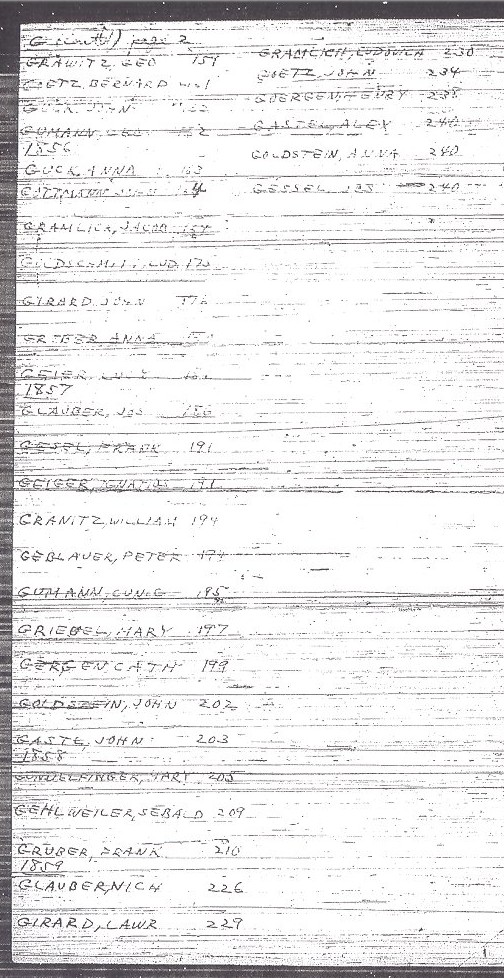 G (cont'd) page 2
GRAWITZ, GEO 151
GOETZ, BERNARD
GUCK, JOHN
GUMANN, GEO 162
1856
GUCK, ANNA 163
GUTTMANN, JOHN 164
GRAMLICH, JACOB
GOLDSCHMITT, LUD
GIRARD, JOHN
ANNA
GEIER,
1857
GLAUBER, JOS 186
GESEL, FRANK 191
GEIGER, IGNATIUS 191
GRANITZ, WILLIAM 194
GEBLAUER, PETER 194
GUMANN, CUN.G 195
GRIEBEL, MARY 197
GERGEN CATH 199
GOLDSZEIN, JOHN 202
GASTE, JOHN 203
1858
MARY 205
GEHLWEILER, SEBALD 209
GRUBER, FRANK 210
1859
GLAUBER, NICH 226
GIRARD, LAWR 229
GRAMLICH, LUDOVICA 230
GOETZ, JOHN 234
GOERGEN HENRY 238
GASTEL, ALEX 240
GOLDSTEIN, ANNA 240
GESSEL, JOS 240